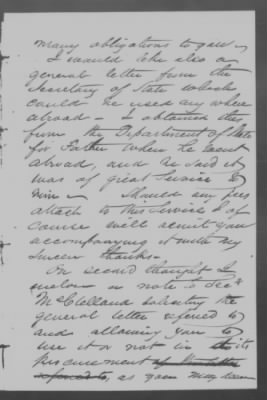 many obligations to you
I would like also a
general letter from the
Secretary of State which
could be used any where
abroad - I obtained this
from the Department of State
for Father when he went
abroad, and he said it
was of great service to
him - Should any fees
attach to this service I of
course will remit you
accompanying it with my
sincere thanks.
On second thought I
enclose a note to Secy
McClelland soliciting the
general letter referred to
and allowing you to
use it or not in its
procurement of the letter
referred to, as you may